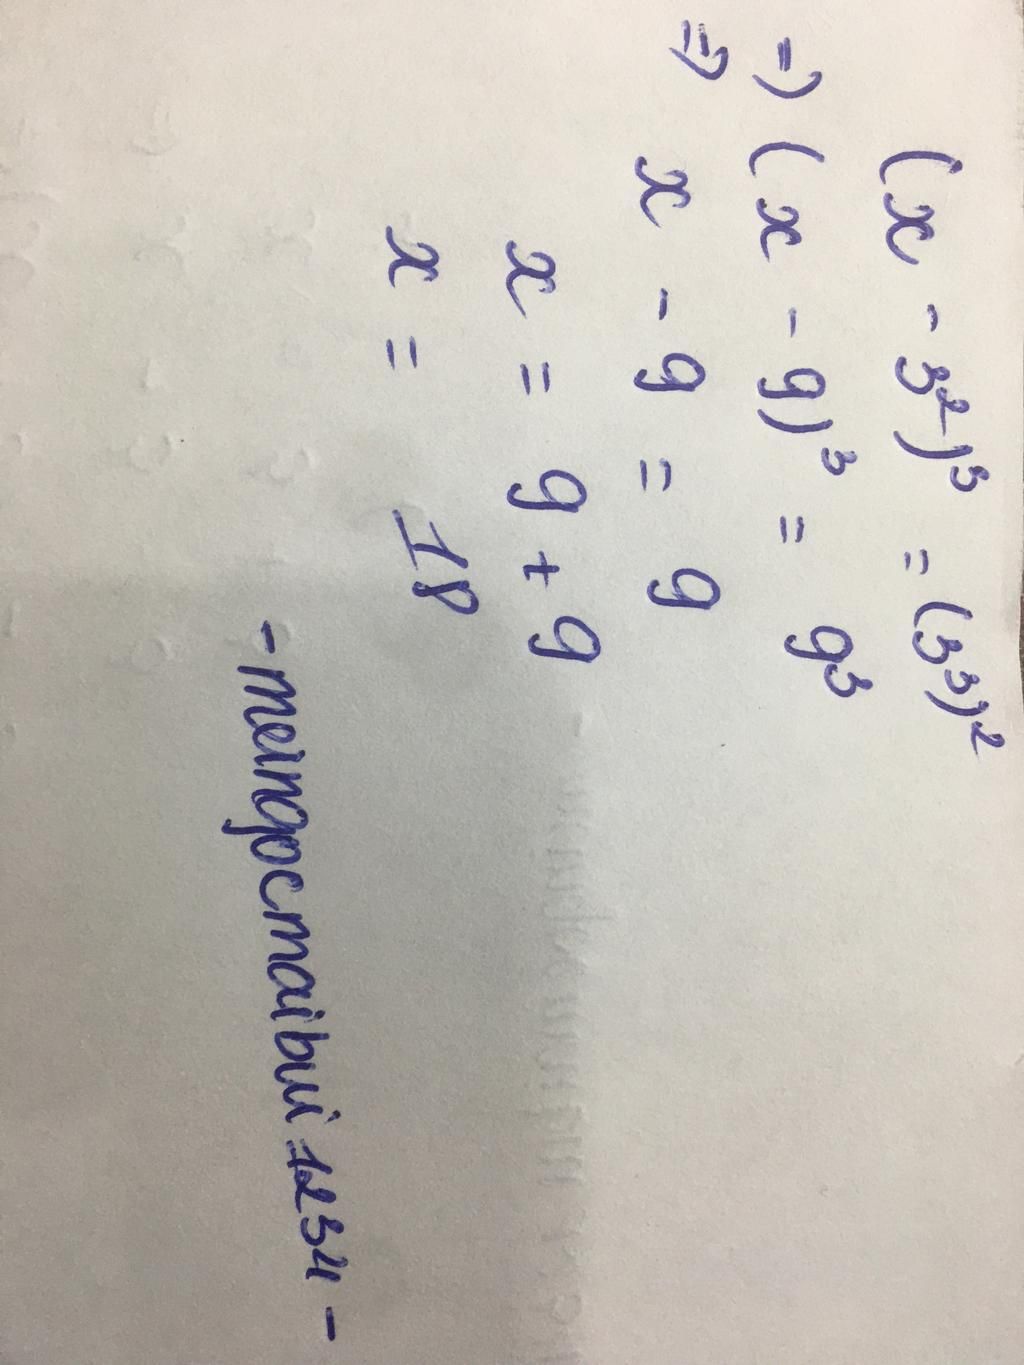 (x - 3²)³ = (3³)²
=) (x - 9)³ = 9³
=) x - 9 = 9
x = 9 + 9
x = 18
- meingocmaibui1234 -